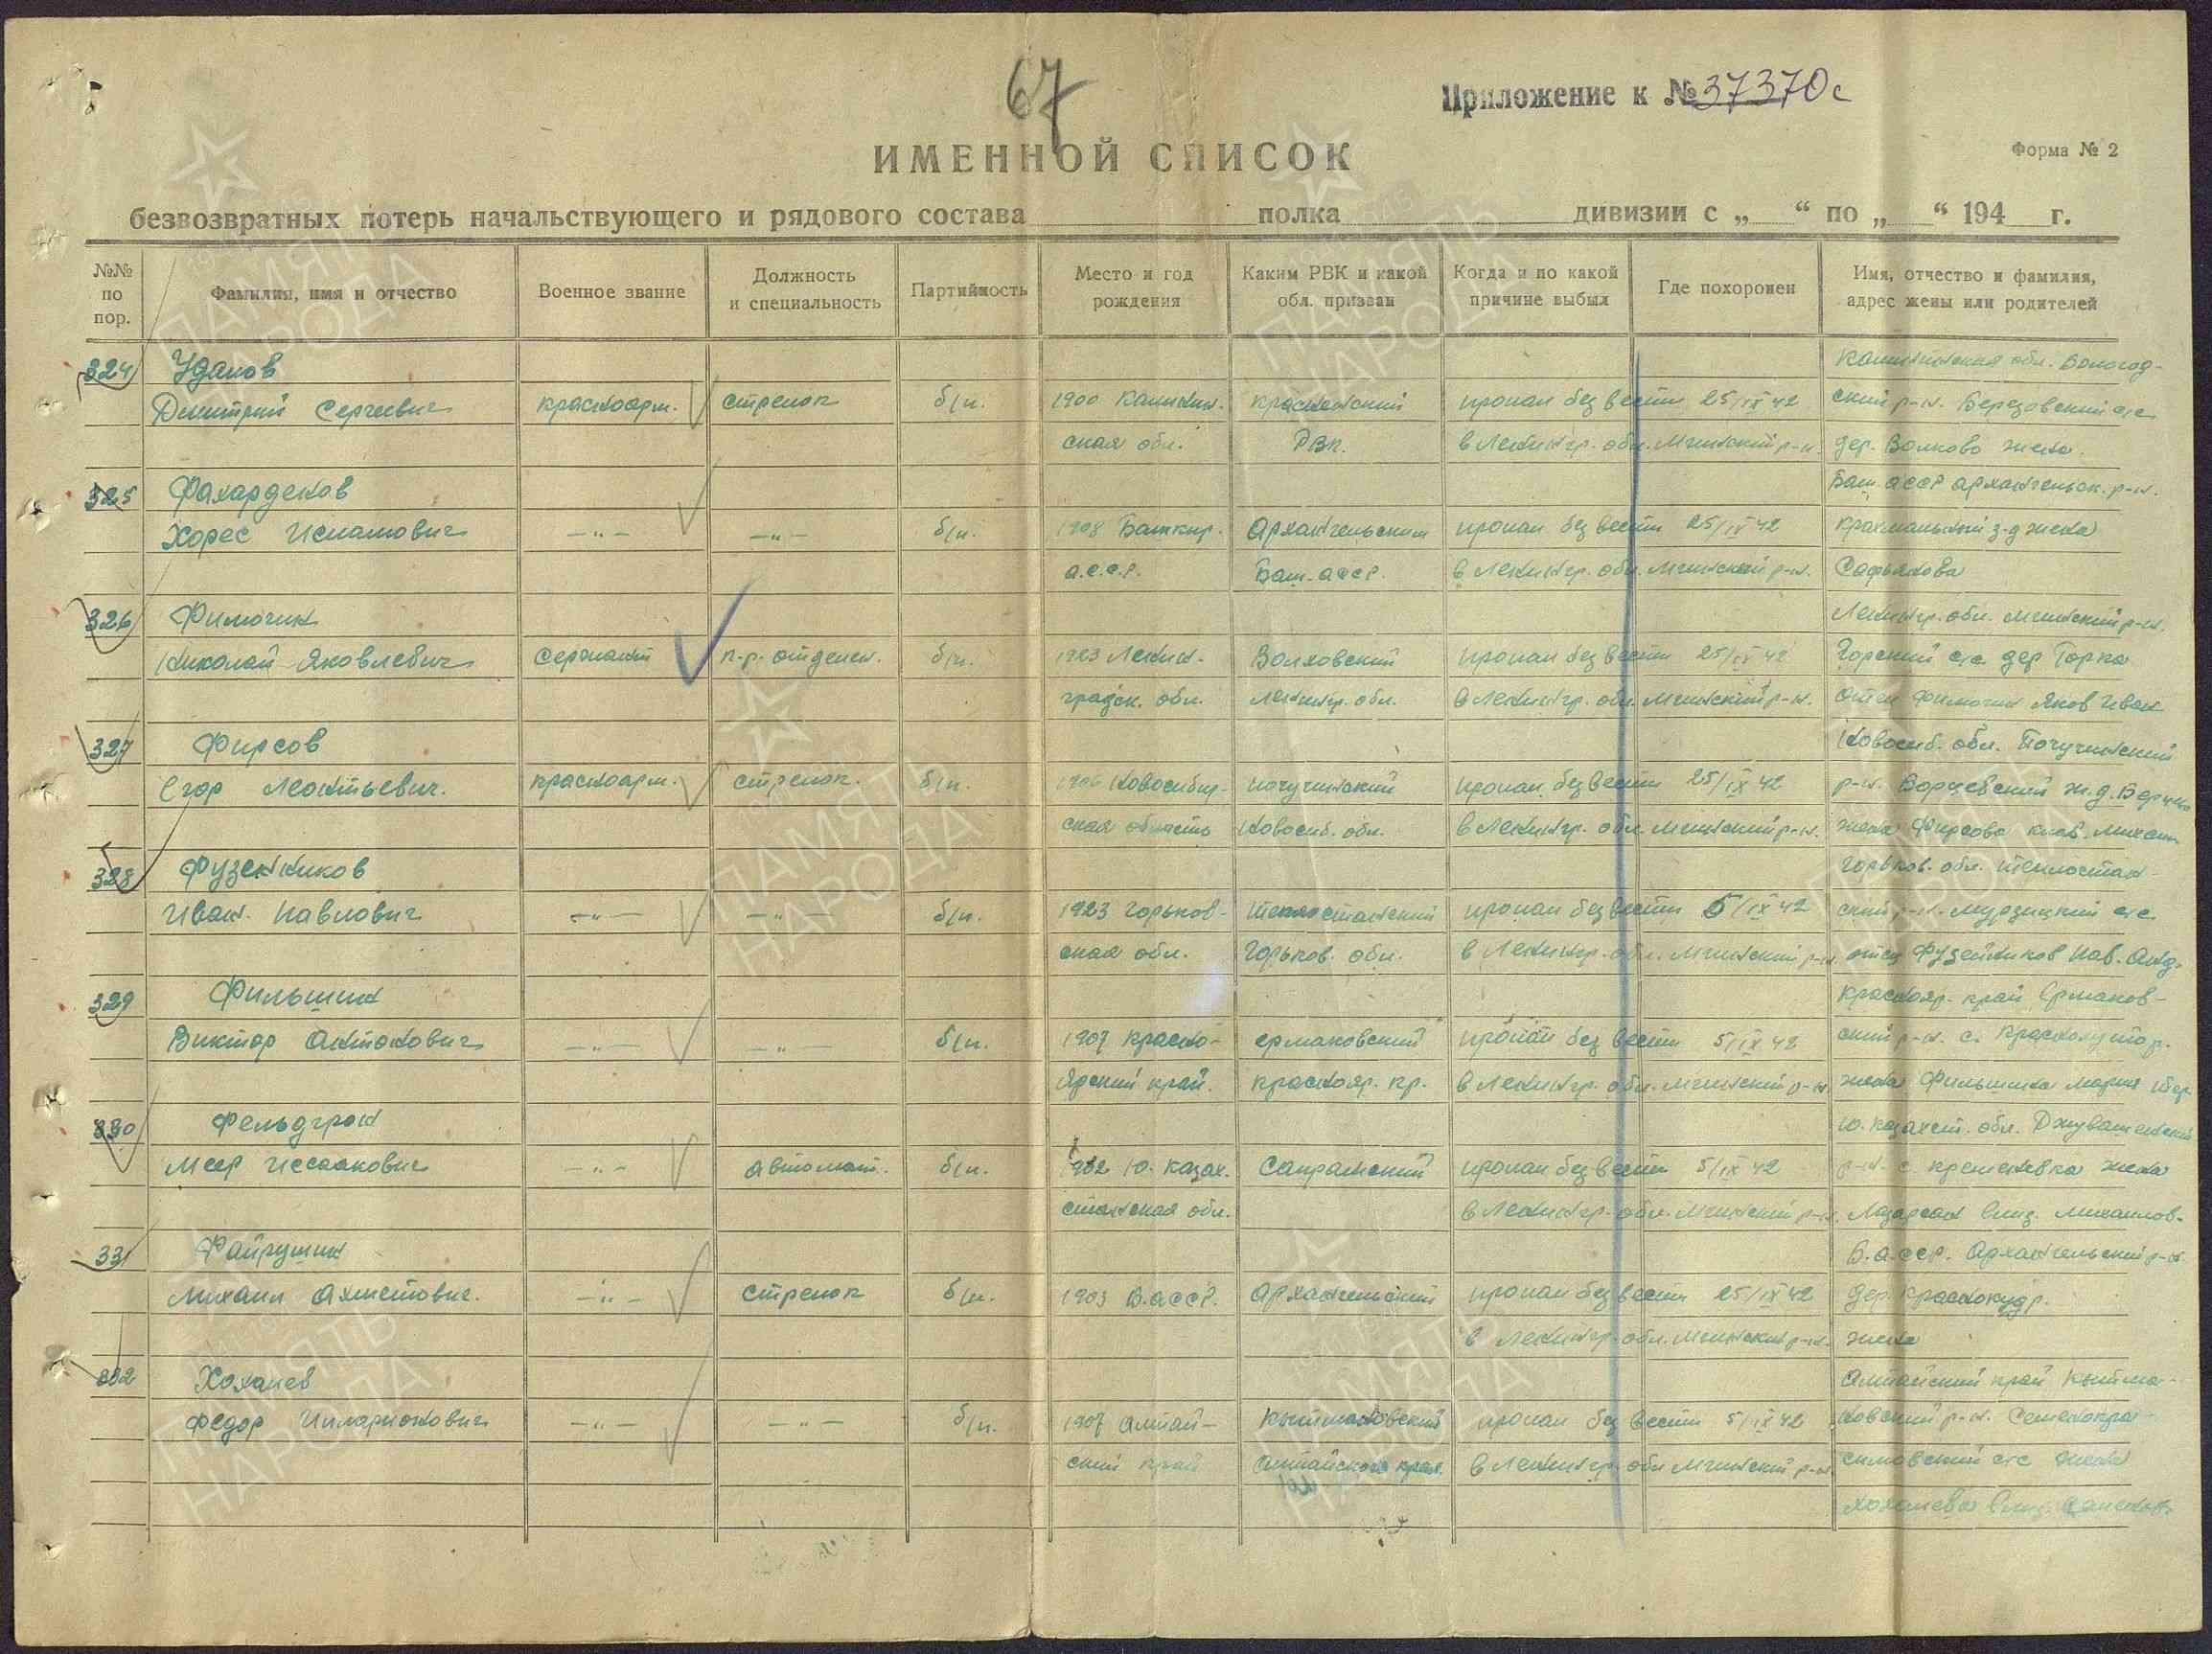 67
Приложение к № 37370с
ИМЕННОЙ СПИСОК
Форма № 2
безвозвратных потерь начальствующего и рядового состава полка дивизии с „ “ по „ “ 194 г.
№№ по пор.
Фамилия, имя и отчество
Военное звание
Должность и специальность
Партийность
Место и год рождения
Каким РВК и какой обл. призван
Когда и по какой причине выбыл
Где похоронен
Имя, отчество и фамилия, адрес жены или родителей
324 Удалов Калининская обл. Вологод-
Дмитрий Сергеевич красноарм. стрелок б/п. 1900 Калинин- пропал без вести 25/IX 42 ский р-н. Березовский с/с
ская обл. РВК. в Ленингр. обл. Мгинский р-н. дер. Волково жена
325 Фахардеков Баш. АССР Архангельск. р-н.
Хорес Исламович —"— —"— б/п. 1908 Башкир. Архангельским пропал без вести 25/IX 42 з-д жена
А.С.С.Р. Баш. АССР. в Ленингр. обл. Мгинский р-н. Сафьянова
326 Филючин Ленингр. обл. Мгинский р-н.
Николай Яковлевич сержант б/п. 1923 Ленин- Волховский пропал без вести 25/IX 42 Горский с/с дер Горка
градск. обл. Ленингр. обл. в Ленингр. обл. Мгинский р-н. отец Филючин Яков Иван
327 Фирсов Новосиб. обл.
Егор Леонтьевич. красноарм. стрелок. б/п. 1906 Новосибир- пропал без вести 25/IX 42 р-н.
ская область Новосиб. обл. в Ленингр. обл. Мгинский р-н. жена Фирсова
328 Фузеников Горьков. обл. Теплостан-
Иван Павлович —"— —"— б/п. 1923 Горьков- Теплостанский пропал без вести 5/IX 42 ский р-н. Мурзицкий с/с.
ская обл. Горьков. обл. в Ленингр. обл. Мгинский р-н. отец Фузейников Пав. Анд.
329 Фильшин Краснояр. край Ермаков-
Виктор Антонович —"— —"— б/п. 1907 Красно- Ермаковский пропал без вести 5/IX 42 ский р-н. с.
ядский край. Краснояр. кр. в Ленингр. обл. Мгинский р-н жена Фильшина Мария
330 Фельдгрон Ю. Казахст. обл.
Меер Иссаакович —"— автомат. б/п. Ю. Казах. Сайрамский пропал без вести 5/IX 42 р-н. с. жена
станская обл. в Ленингр. обл. Мгинский р-н. Лиз. Михайлов.
331 Файрушин Б. АССР. Архангельский р-н.
Михаил Ахметович. —"— стрелок б/п. 1903 Б. АССР. Архангельский пропал без вести 25/IX 42 дер.
в Ленингр. обл. Мгинский р-н. жена
332 Хохлнев Алтайский край Кытма-
Федор Илларионович —"— —"— б/п. 1907 Алтай- Кытмановский пропал без вести 5/IX 42 новский р-н.
ский край Алтайского края. в Ленингр. обл Мгинский р-н. с/с жена